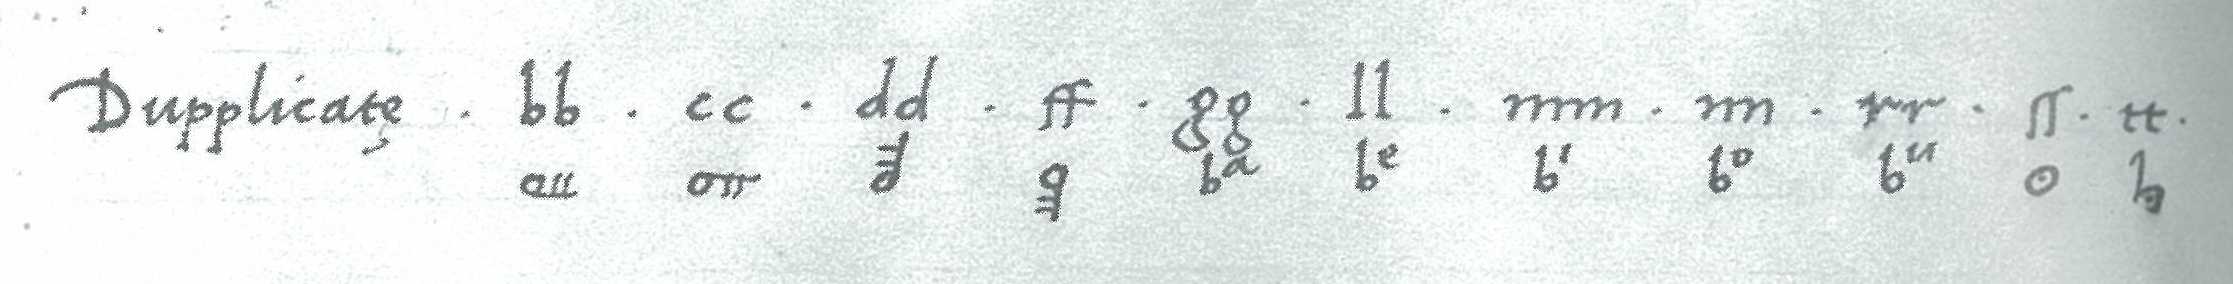 Dupplicatę . bb . cc . dd . ff . gg . ll . mm . nn . rr . ſſ . tt .
bᵃ bᵉ bⁱ bᵒ bᵘ